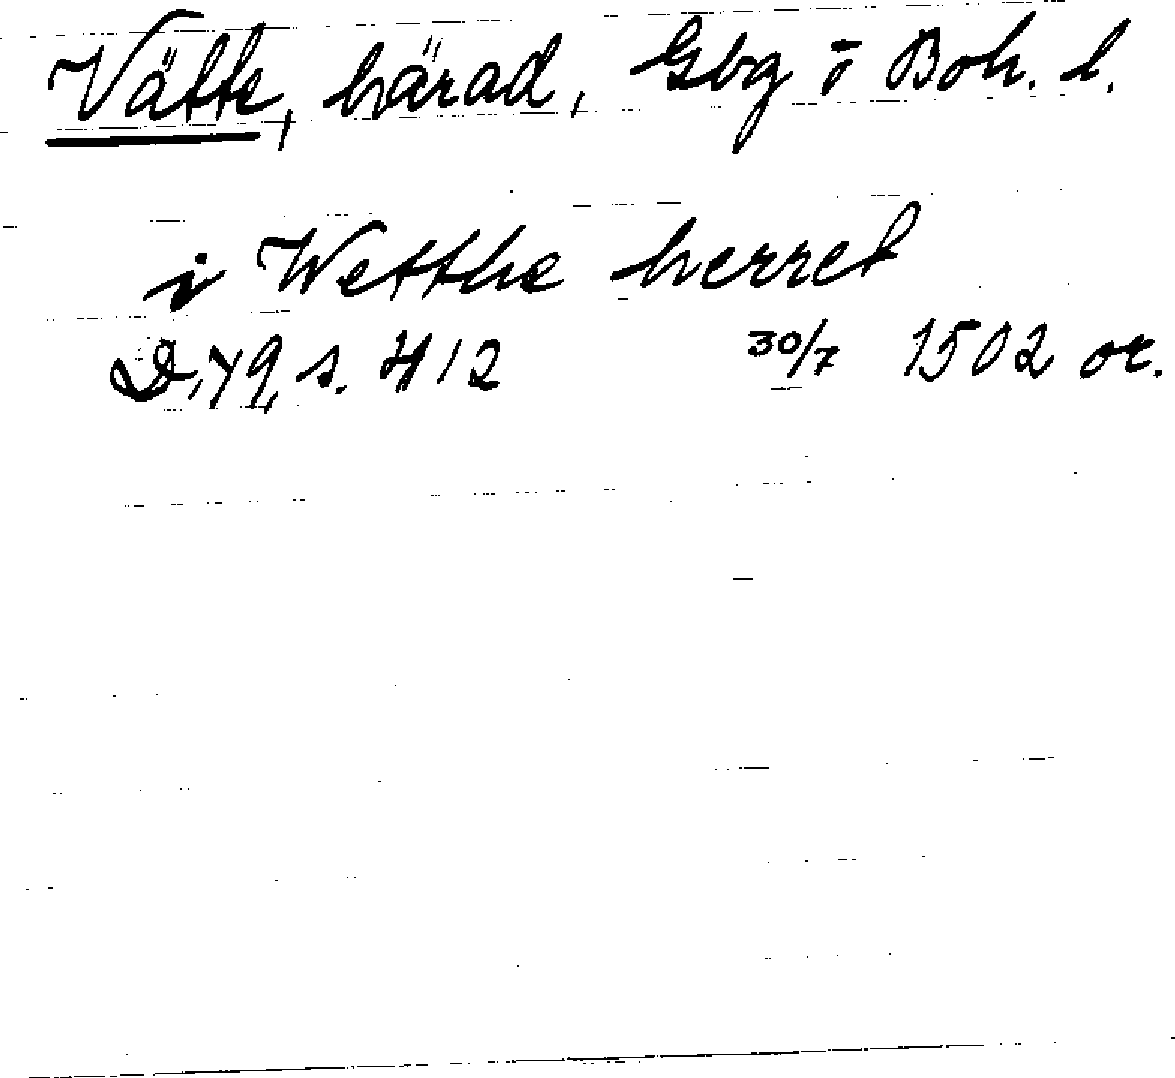 Vätte, härad, Gbg o Boh. l.
i Wetthe herret
s. 412 30/7 1502 or.